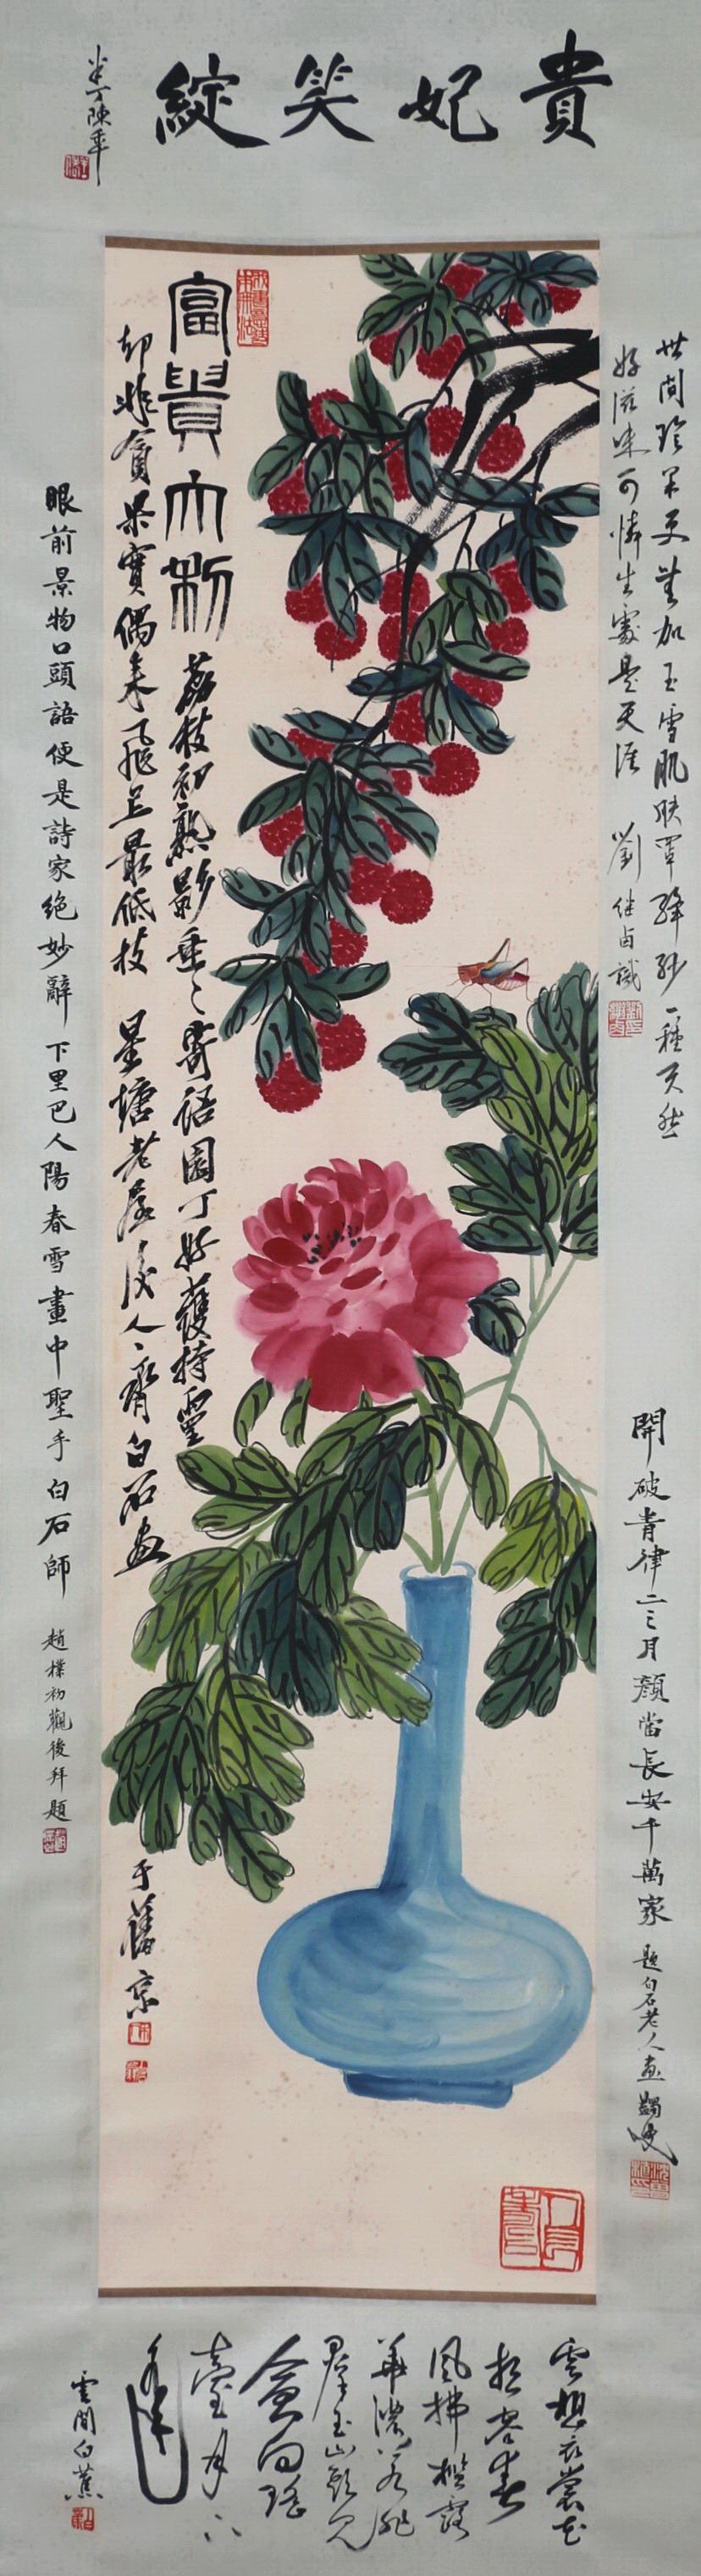 貴妃笑綻
半丁陳年
富貴大利
荔枝初熟影垂垂寄語園丁好護持靈
却非貪果實偶来飛上最低枝 星塘老屋後人齊白石画
于舊京
世間珍果更無加玉雪肌膚罩絳紗一種天然
好滋味可憐生處是天涯 劉繼卣識
開破青律二三月顏當長安千萬家 題白石老人画
眼前景物口頭語便是詩家絕妙辭下里巴人陽春雪畫中聖手白石師 趙樸初觀後拜題
雲想衣裳花
想容春
風拂檻露
華濃若非
群玉山頭見
會向瑤
臺月下
逢
雲間白蕉